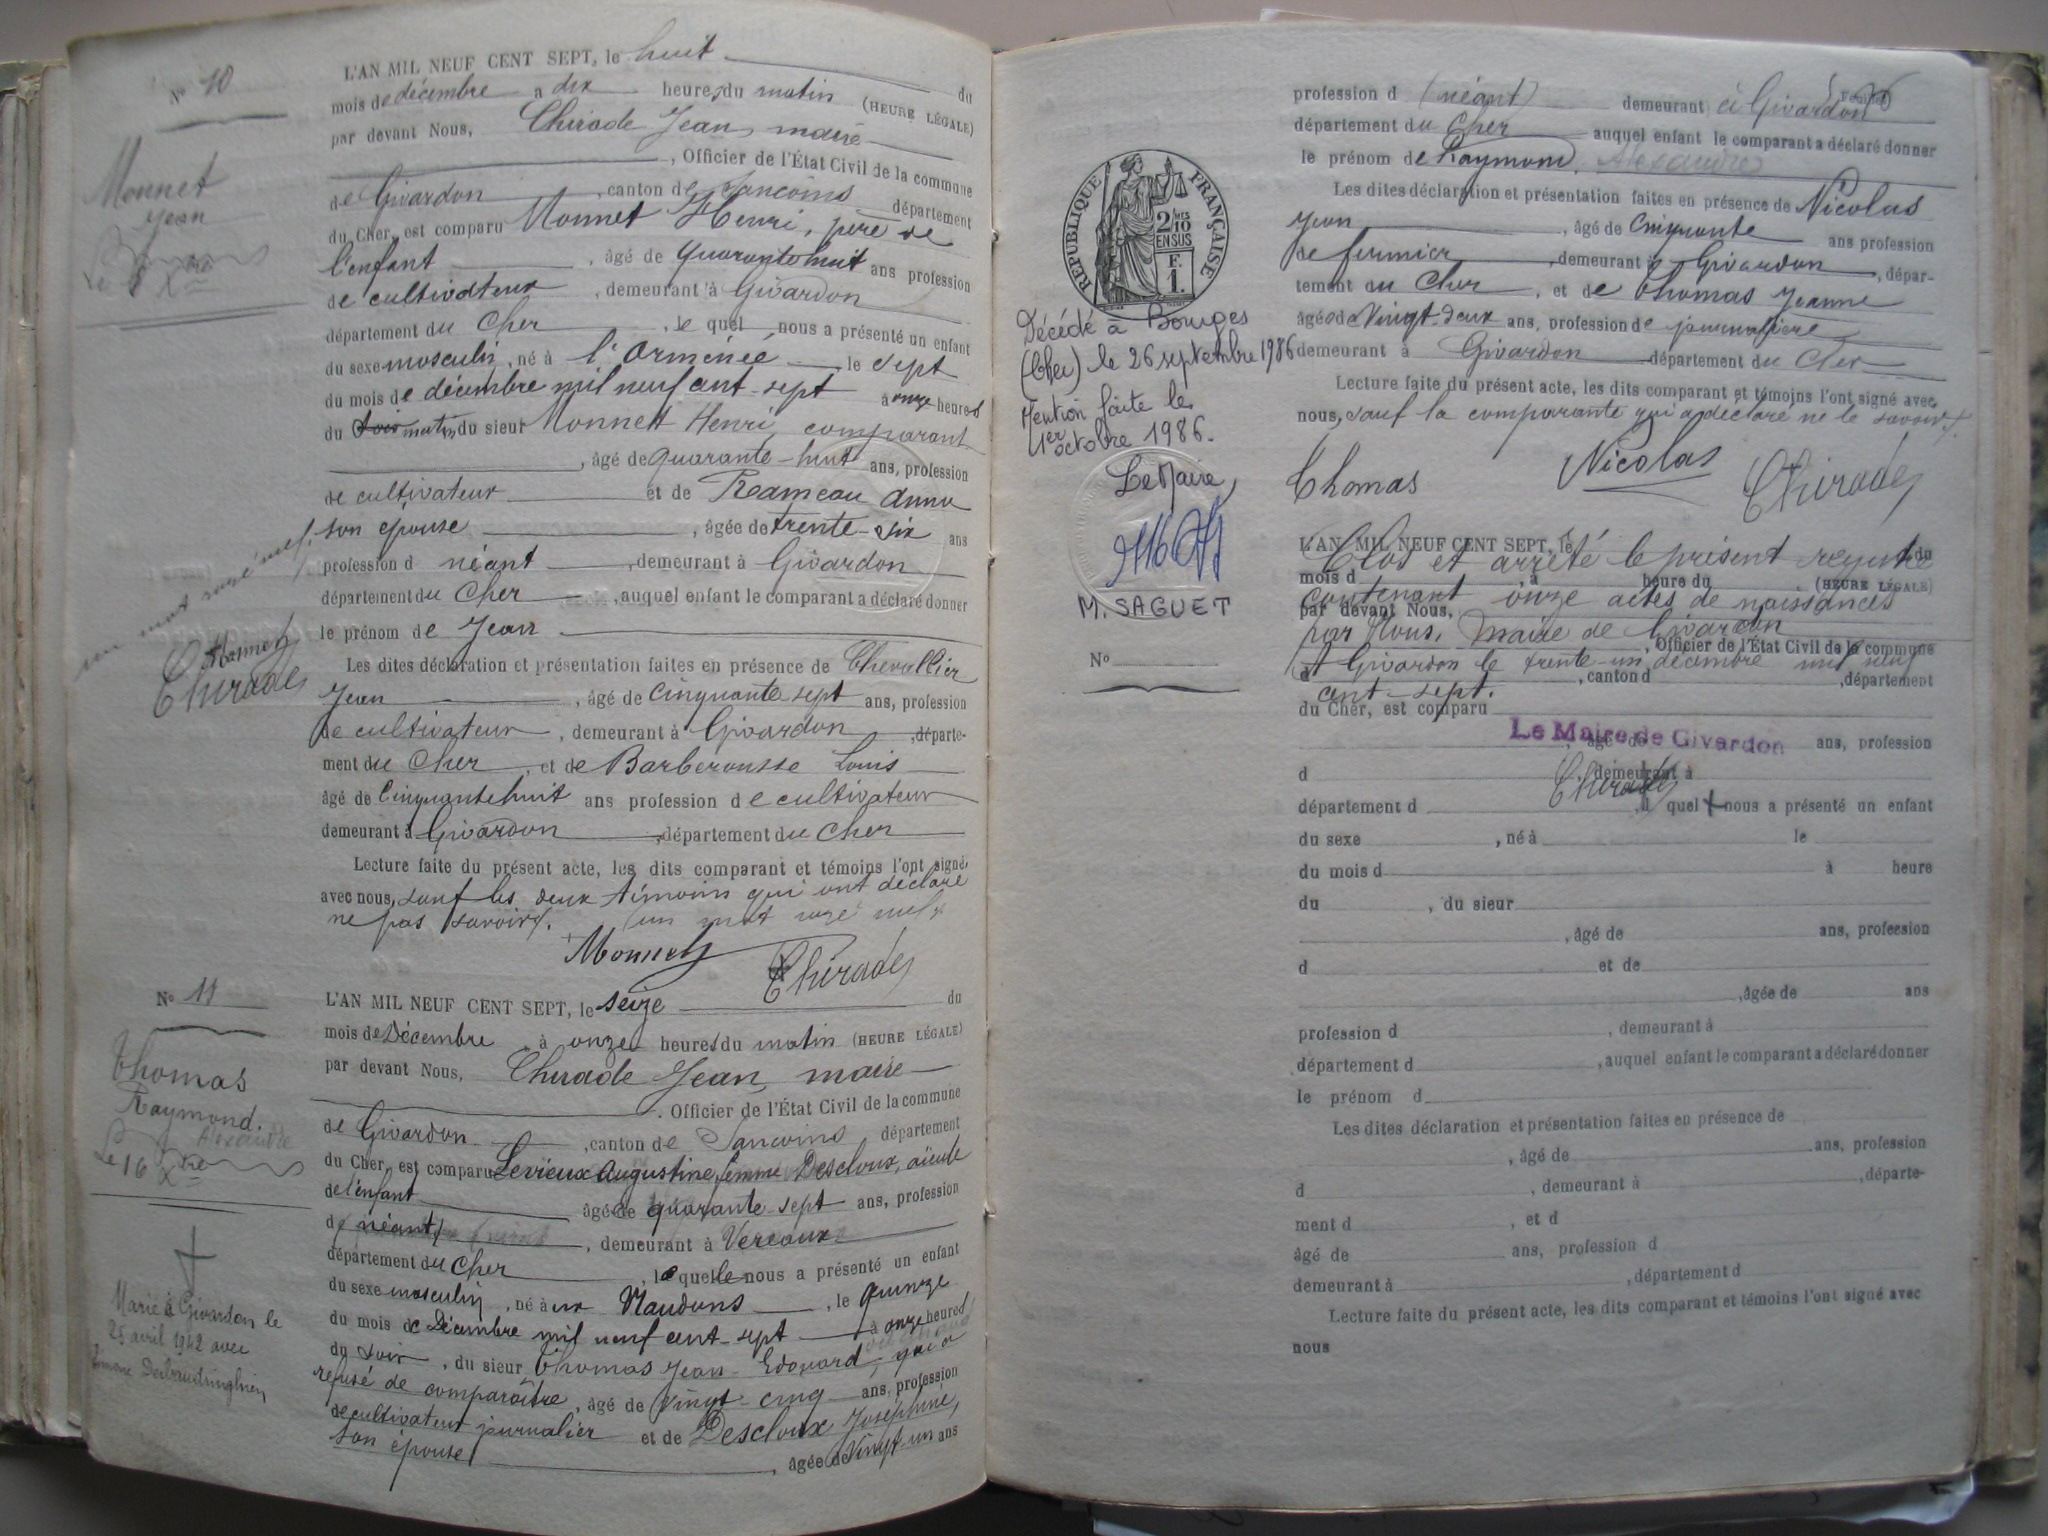 N° 10
Monnet
Jean
Le 8 Xbre
L'AN MIL NEUF CENT SEPT, le huit du
mois de décembre a dix heures du matin (HEURE LÉGALE)
par devant Nous, Thirade Jean, maire
, Officier de l'État Civil de la commune
de Givardon, canton de Sancoins département
du Cher, est comparu Monnet Henri, père de
l'enfant, âgé de quarante huit ans profession
de cultivateur, demeurant à Givardon
département du Cher, le quel nous a présenté un enfant
du sexe masculin, né à l'Orménée le sept
du mois de décembre mil neuf cent sept à onze heures
du soir matin, du sieur Monnet Henri, comparant
, âgé de quarante-huit ans, profession
de cultivateur et de Rameau Anna
son épouse, âgée de trente-six ans
profession d néant, demeurant à Givardon
département du Cher, auquel enfant le comparant a déclaré donner
le prénom de Jean
un mot rayé nul.
Monnet
Thirade
Les dites déclaration et présentation faites en présence de Chevallier
Jean, âgé de cinquante sept ans, profession
de cultivateur, demeurant à Givardon, départe-
ment du Cher, et de Barberousse Louis
âgé de cinquante huit ans profession de cultivateur
demeurant à Givardon, département du Cher
Lecture faite du présent acte, les dits comparant et témoins l'ont signé
avec nous, sauf les deux témoins qui ont déclaré
ne pas savoir. (un mot rayé nul)
Monnet Thirade
N° 11
Thomas
Raymond.
Alexandre
Le 16 Xbre
Marié à Givardon le
25 avril 1942 avec
L'AN MIL NEUF CENT SEPT, le seize du
mois de Décembre, à onze heures du matin (HEURE LÉGALE)
par devant Nous, Thirade Jean, maire
. Officier de l'État Civil de la commune
de Givardon, canton de Sancoins département
du Cher, est comparu Levieux Augustine, femme Descloux, aïeule
de l'enfant âgée de quarante-sept ans, profession
d (néant), demeurant à Vereaux
département du Cher, la quelle nous a présenté un enfant
du sexe masculin, né aux Naudons, le quinze
du mois de Décembre mil neuf cent-sept à onze heures
du soir, du sieur Thomas Jean-Edouard, qui a
refusé de comparaître, âgé de vingt-cinq ans, profession
de cultivateur journalier et de Descloux Joséphine,
son épouse, âgée de vingt un ans
profession d (néant) demeurant à Givardon
département du Cher auquel enfant le comparant a déclaré donner
le prénom de Raymond. Alexandre
Les dites déclaration et présentation faites en présence de Nicolas
Jean, âgé de cinquante ans profession
de fermier, demeurant à Givardon, dépar-
tement du Cher, et de Thomas Jeanne
âgée de vingt-deux ans, profession de journalière
demeurant à Givardon département du Cher
Lecture faite du présent acte, les dits comparant et témoins l'ont signé avec
nous, sauf la comparante qui a déclaré ne le savoir.
Thomas Nicolas Thirade
RÉPUBLIQUE FRANÇAISE
2/10 EN SUS
F. 1.
Décédé à Bourges
(Cher) le 26 septembre 1986
Mention faite le
1er octobre 1986.
Le Maire,
M. SAGUET
N°
L'AN MIL NEUF CENT SEPT, le du
Clos et arrêté le présent registre
mois d à heure du (HEURE LÉGALE)
contenant onze actes de naissances
par devant Nous,
par Nous, Maire de Givardon
, Officier de l'État Civil de la commune
A Givardon le trente-un décembre mil neuf
d, canton d, département
cent-sept.
du Cher, est comparu
Le Maire de Givardon
, âgé de ans, profession
d, demeurant à
Thirade
département d, l quel nous a présenté un enfant
du sexe, né à le
du mois d à heure
du, du sieur
, âgé de ans, profession
d et de
, âgée de ans
profession d, demeurant à
département d, auquel enfant le comparant a déclaré donner
le prénom d
Les dites déclaration et présentation faites en présence de
, âgé de ans, profession
d, demeurant à, départe-
ment d, et d
âgé de ans, profession d
demeurant à, département d
Lecture faite du présent acte, les dits comparant et témoins l'ont signé avec
nous